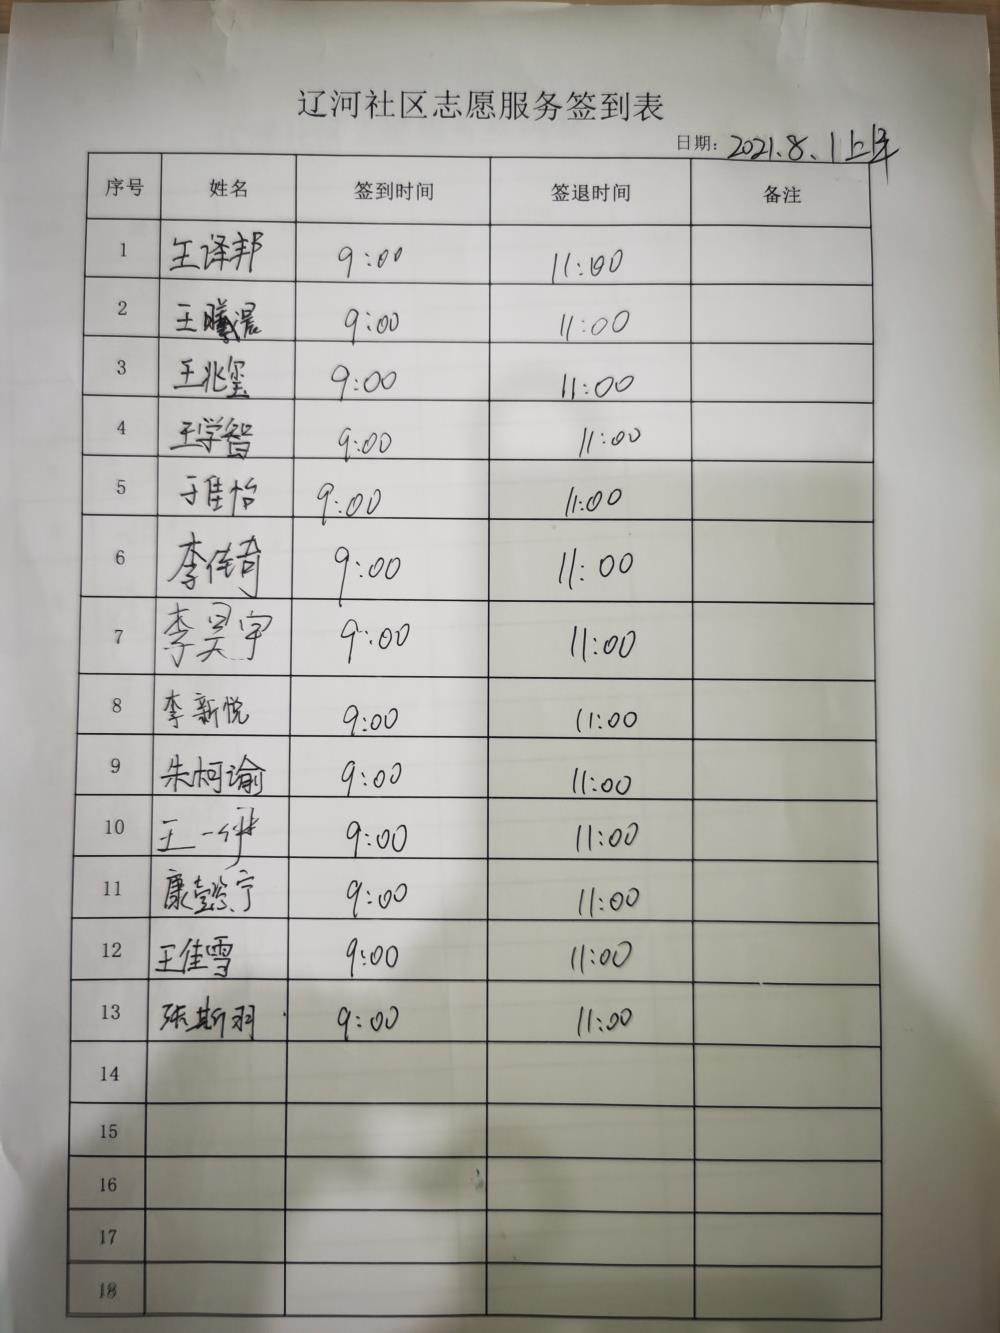 辽河社区志愿服务签到表
日期: 2021.8.1上午
序号 姓名 签到时间 签退时间 备注
1 王译邦 9:00 11:00
2 王曦晨 9:00 11:00
3 王兆玺 9:00 11:00
4 王学智 9:00 11:00
5 于佳怡 9:00 11:00
6 李传奇 9:00 11:00
7 李昊宇 9:00 11:00
8 李新悦 9:00 11:00
9 朱柯谕 9:00 11:00
10 王一 9:00 11:00
11 康懿宁 9:00 11:00
12 王佳雪 9:00 11:00
13 张斯羽 9:00 11:00
14
15
16
17
18